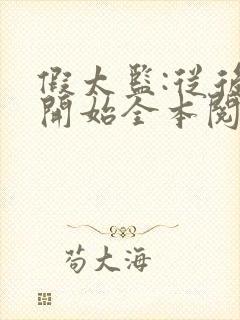 假太監:從後
開始全本閱
苟大海